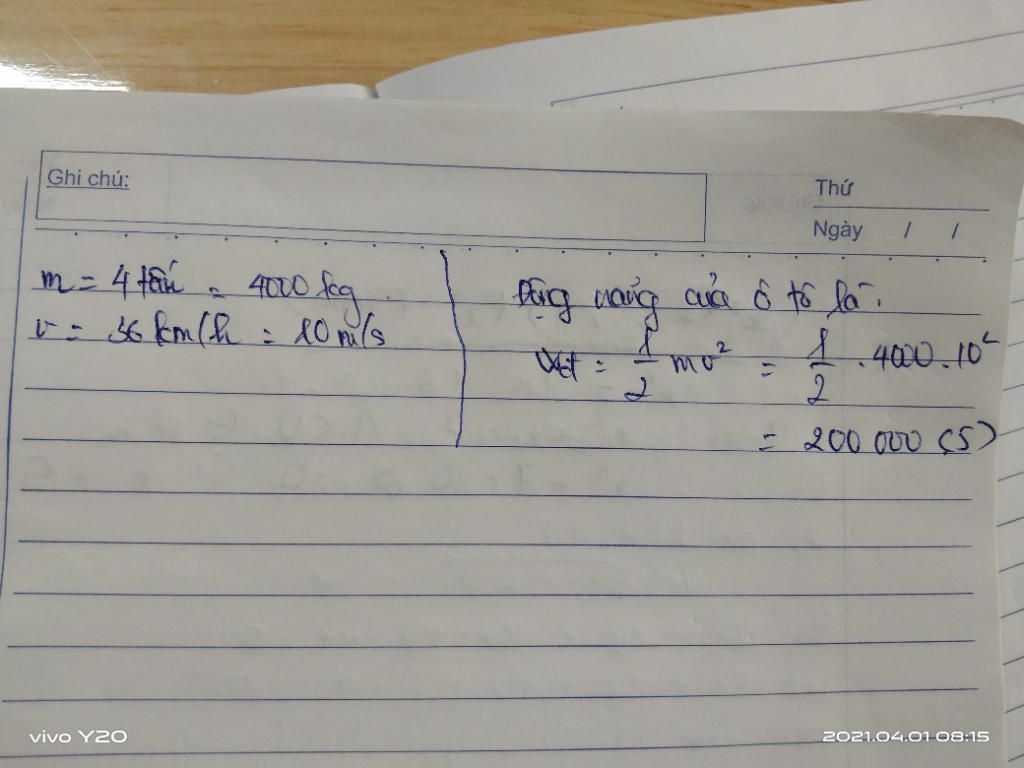 Ghi chú:
Thứ
Ngày / /
m = 4 tấn = 4000 kg
v = 36 km/h = 10 m/s
Động năng của ô tô là:
Wđ = 1/2 mv² = 1/2 . 4000 . 10²
= 200 000 (J)
vivo Y20
2021.04.01 08:15